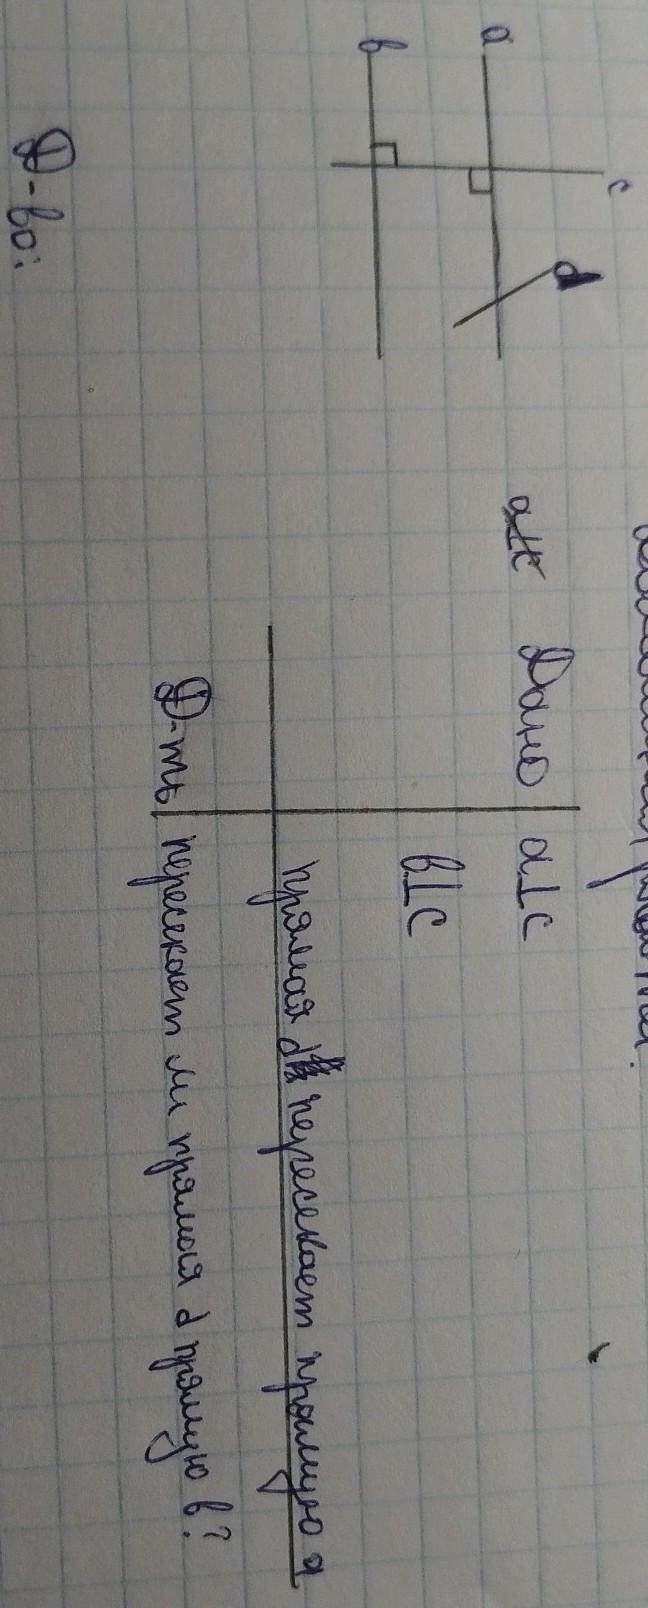 a
в
c
d
Дано
a⊥c
в⊥c
прямая d пересекает прямую a
Д-ть
пересекает ли прямая d прямую в?
Д-во: